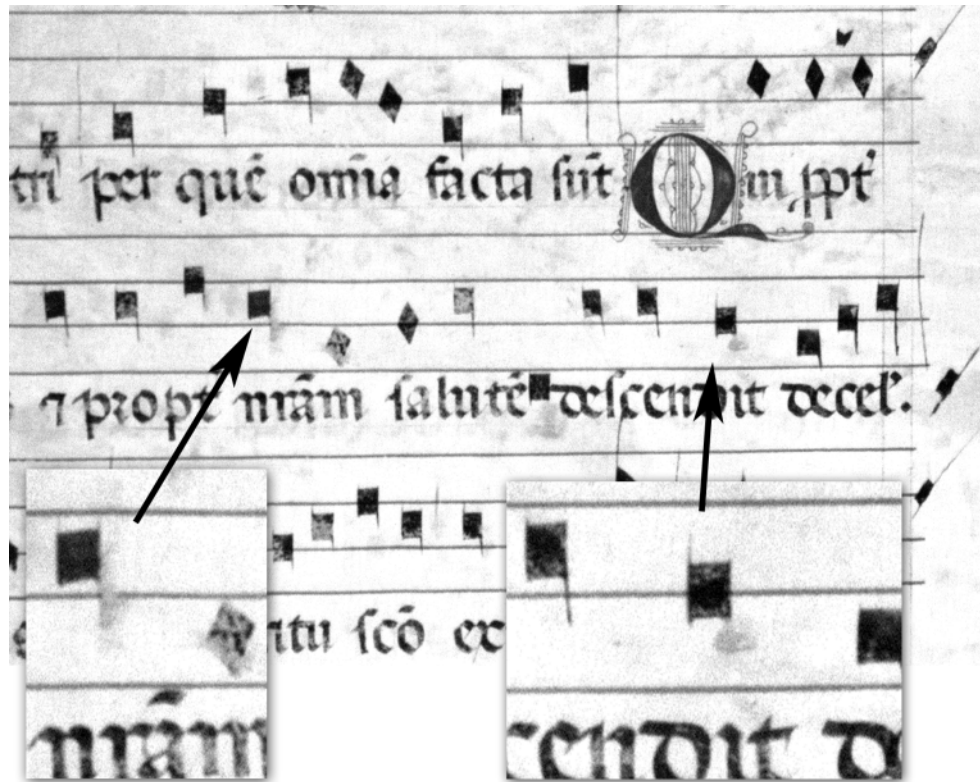 tri per quē om̄ia facta sūt Qui ꝓpt'
⁊ propt nr̄am salutē descendit decel'.
itu sc̄o ex
nr̄am
cendit d